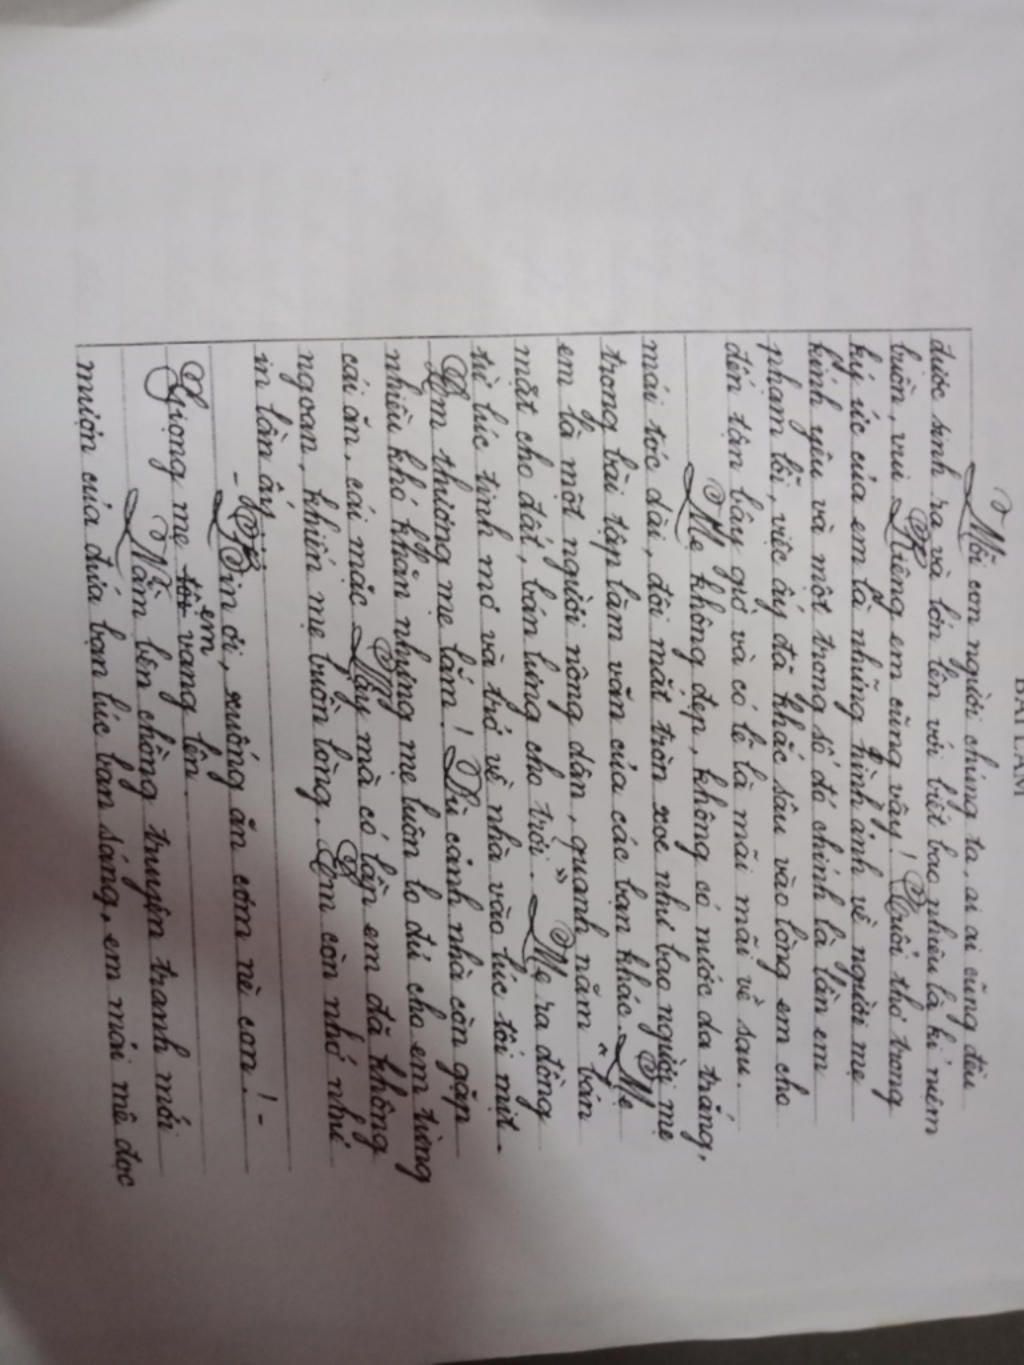 BÀI LÀM
Mỗi con người chúng ta, ai ai cũng đều
được sinh ra và lớn lên với biết bao nhiêu là kỉ niệm
buồn, vui. Riêng em cũng vậy! Tuổi thơ trong
ký ức của em là những hình ảnh về người mẹ
kính yêu và một trong số đó chính là lần em
phạm lỗi, việc ấy đã khắc sâu vào lòng em cho
đến tận bây giờ và có lẽ là mãi mãi về sau.
Mẹ không đẹp, không có nước da trắng,
mái tóc dài, đôi mắt tròn xoe như bao người mẹ
trong bài tập làm văn của các bạn khác. Mẹ
em là một người nông dân, quanh năm "bán
mặt cho đất, bán lưng cho trời." Mẹ ra đồng
từ lúc tinh mơ và trở về nhà vào lúc tối mịt.
Em thương mẹ lắm! Dù cảnh nhà còn gặp
nhiều khó khăn nhưng mẹ luôn lo đủ cho em từng
cái ăn, cái mặc. Vậy mà có lần em đã không
ngoan, khiến mẹ buồn lòng. Em còn nhớ như
in lần ấy...
- Bin ơi, xuống ăn cơm nè con! -
Giọng mẹ tôi em vang lên.
Nằm bên chồng truyện tranh mới
mượn của đứa bạn lúc ban sáng, em mải mê đọc